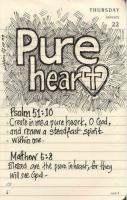 THURSDAY
January
22
Pure
heart
Psalm 51:10
Create in me a pure heart, O God,
and renew a steadfast spirit
within me.
Matthew 5:8
Blessed are the pure in heart, for they
will see God.